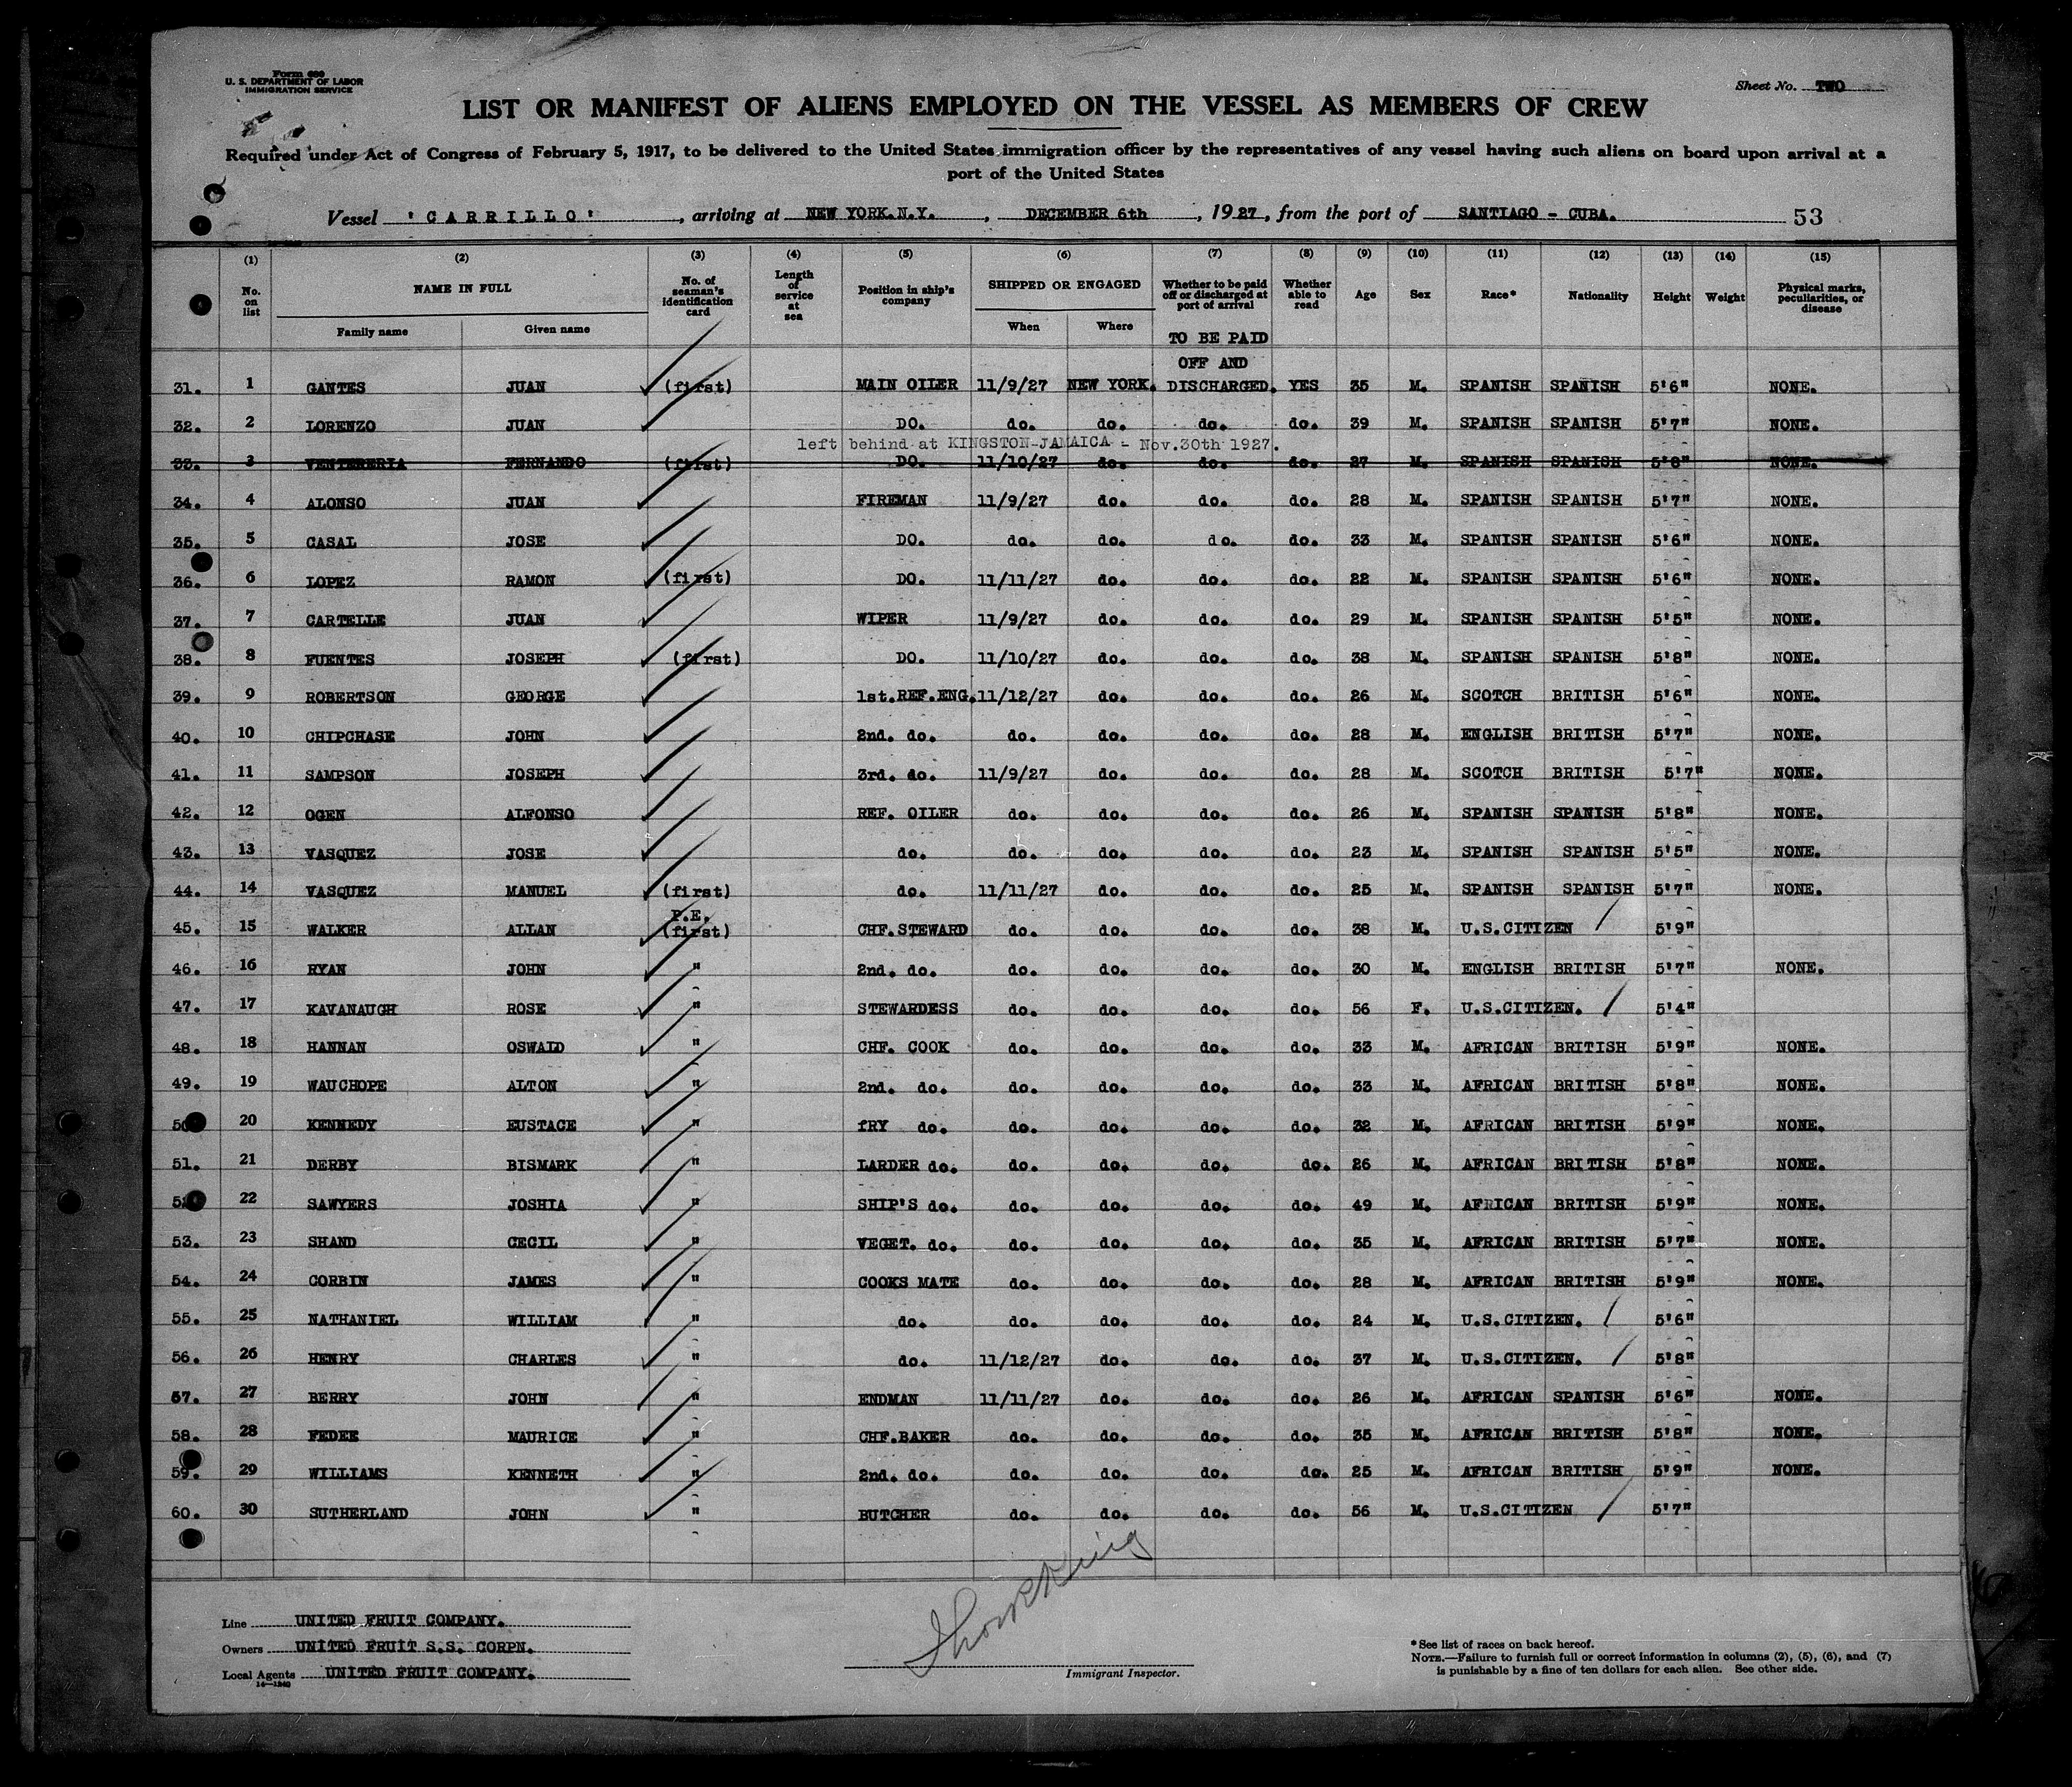 Form 680
U. S. DEPARTMENT OF LABOR
IMMIGRATION SERVICE
Sheet No. TWO
LIST OR MANIFEST OF ALIENS EMPLOYED ON THE VESSEL AS MEMBERS OF CREW
Required under Act of Congress of February 5, 1917, to be delivered to the United States immigration officer by the representatives of any vessel having such aliens on board upon arrival at a
port of the United States
Vessel 'CARRILLO', arriving at NEW YORK.N.Y., DECEMBER 6th, 1927, from the port of SANTIAGO - CUBA. 53
(1) (2) (3) (4) (5) (6) (7) (8) (9) (10) (11) (12) (13) (14) (15)
No. on list NAME IN FULL Family name Given name No. of seaman's identification card Length of service at sea Position in ship's company SHIPPED OR ENGAGED When Where Whether to be paid off or discharged at port of arrival Whether able to read Age Sex Race* Nationality Height Weight Physical marks, peculiarities, or disease
TO BE PAID
OFF AND
31. 1 GANTES JUAN (first) MAIN OILER 11/9/27 NEW YORK. DISCHARGED. YES 35 M. SPANISH SPANISH 5'6" NONE.
32. 2 LORENZO JUAN DO. do. do. do. do. 39 M. SPANISH SPANISH 5'7" NONE.
left behind at KINGSTON-JAMAICA - Nov.30th 1927.
33. 3 VENTERERIA FERNANDO (first) DO. 11/10/27 do. do. do. 27 M. SPANISH SPANISH 5'8" NONE.
34. 4 ALONSO JUAN FIREMAN 11/9/27 do. do. do. 28 M. SPANISH SPANISH 5'7" NONE.
35. 5 CASAL JOSE DO. do. do. do. do. 33 M. SPANISH SPANISH 5'6" NONE.
36. 6 LOPEZ RAMON (first) DO. 11/11/27 do. do. do. 22 M. SPANISH SPANISH 5'6" NONE.
37. 7 CARTELLE JUAN WIPER 11/9/27 do. do. do. 29 M. SPANISH SPANISH 5'5" NONE.
38. 8 FUENTES JOSEPH (first) DO. 11/10/27 do. do. do. 38 M. SPANISH SPANISH 5'8" NONE.
39. 9 ROBERTSON GEORGE 1st.REF.ENG. 11/12/27 do. do. do. 26 M. SCOTCH BRITISH 5'6" NONE.
40. 10 CHIPCHASE JOHN 2nd. do. do. do. do. do. 28 M. ENGLISH BRITISH 5'7" NONE.
41. 11 SAMPSON JOSEPH 3rd. do. 11/9/27 do. do. do. 28 M. SCOTCH BRITISH 5'7" NONE.
42. 12 OGEN ALFONSO REF. OILER do. do. do. do. 26 M. SPANISH SPANISH 5'8" NONE.
43. 13 VASQUEZ JOSE do. do. do. do. do. 23 M. SPANISH SPANISH 5'5" NONE.
44. 14 VASQUEZ MANUEL (first) do. 11/11/27 do. do. do. 25 M. SPANISH SPANISH 5'7" NONE.
P.E.
45. 15 WALKER ALLAN (first) CHF.STEWARD do. do. do. do. 38 M. U.S.CITIZEN 5'9"
46. 16 RYAN JOHN " 2nd. do. do. do. do. do. 30 M. ENGLISH BRITISH 5'7" NONE.
47. 17 KAVANAUGH ROSE " STEWARDESS do. do. do. do. 56 F. U.S.CITIZEN. 5'4"
48. 18 HANNAN OSWALD " CHF. COOK do. do. do. do. 33 M. AFRICAN BRITISH 5'9" NONE.
49. 19 WAUCHOPE ALTON " 2nd. do. do. do. do. do. 33 M. AFRICAN BRITISH 5'8" NONE.
50 20 KENNEDY EUSTACE " fRY do. do. do. do. do. 32 M. AFRICAN BRITISH 5'9" NONE.
51. 21 DERBY BISMARK " LARDER do. do. do. do. do. 26 M. AFRICAN BRITISH 5'8" NONE.
5 22 SAWYERS JOSHIA " SHIP'S do. do. do. do. do. 49 M. AFRICAN BRITISH 5'9" NONE.
53. 23 SHAND CECIL " VEGET. do. do. do. do. do. 35 M. AFRICAN BRITISH 5'7" NONE.
54. 24 CORBIN JAMES " COOKS MATE do. do. do. do. 28 M. AFRICAN BRITISH 5'9" NONE.
55. 25 NATHANIEL WILLIAM " do. do. do. do. do. 24 M. U.S.CITIZEN. 5'6"
56. 26 HENRY CHARLES " do. 11/12/27 do. do. do. 37 M. U.S.CITIZEN. 5'8"
57. 27 BERRY JOHN " ENDMAN 11/11/27 do. do. do. 26 M. AFRICAN SPANISH 5'6" NONE.
58. 28 FEDEE MAURICE " CHF.BAKER do. do. do. do. 35 M. AFRICAN BRITISH 5'8" NONE.
59. 29 WILLIAMS KENNETH " 2nd. do. do. do. do. do. 25 M. AFRICAN BRITISH 5'9" NONE.
60. 30 SUTHERLAND JOHN " BUTCHER do. do. do. do. 56 M. U.S.CITIZEN 5'7"
Line UNITED FRUIT COMPANY.
Owners UNITED FRUIT S.S. CORPN.
Local Agents UNITED FRUIT COMPANY.
14—1240
Immigrant Inspector.
*See list of races on back hereof.
NOTE.—Failure to furnish full or correct information in columns (2), (5), (6), and (7)
is punishable by a fine of ten dollars for each alien. See other side.